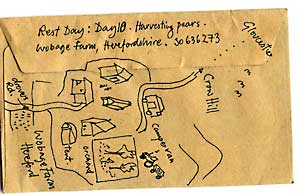 Rest Day: Day 10. Harvesting pears.
Wobage Farm, Herefordshire. SO636273
Gloucester
Crow Hill
Campervan
orchard
tent
Wobage Farm
Hereford
Rd